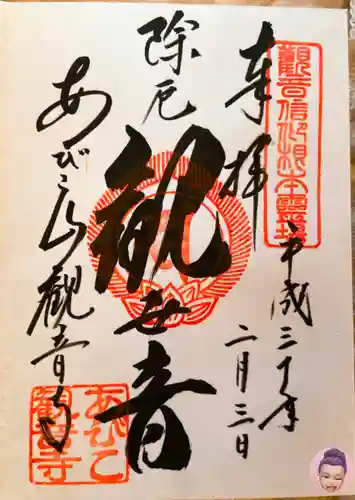 奉拝
觀音信仰根本靈場
平成三十年
二月三日
除厄
観世音
あびこ山観音寺
あびこ
観音寺